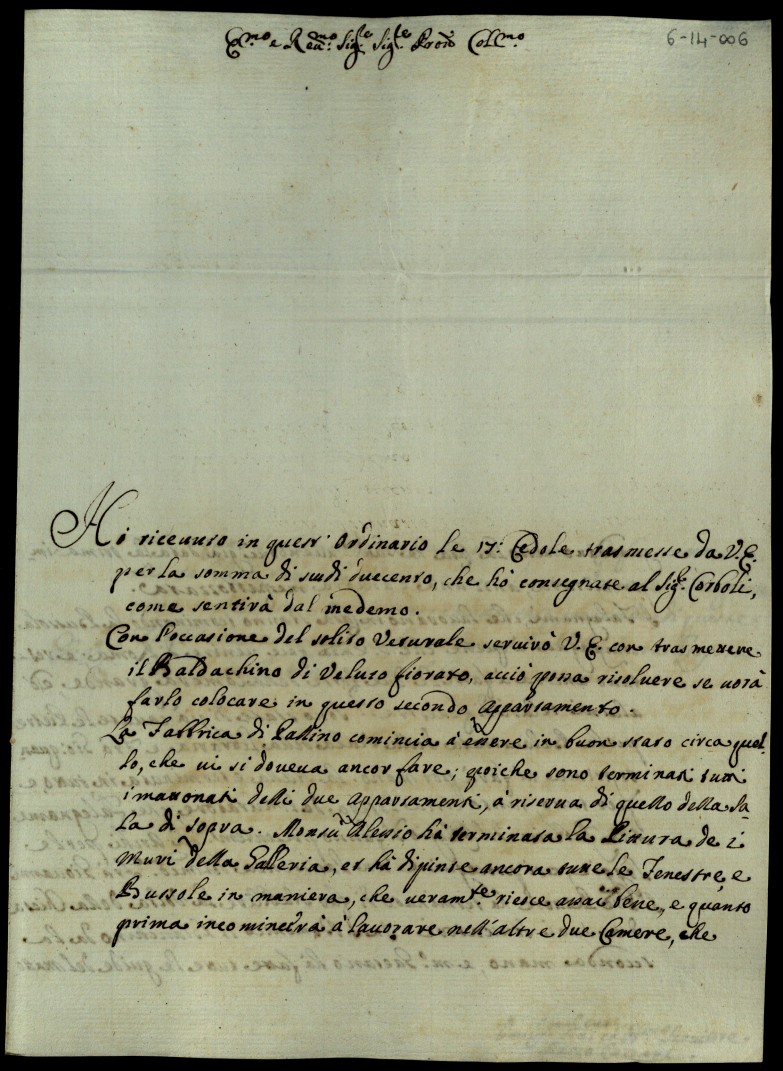 6-14-006
E.mo e Reu.mo Sig.re Sig.re Prōn Col.mo
Hò riceuuto in quest' Ordinario le 17: Cedole trasmesse da V.E.
per la somma di scudi duecento, che hò consegnate al Sig.r Corboli,
come sentirà dal medemo.
Con l'occasione del solito Vetturale seruirò V.E. con trasmettere
il Baldachino di Veluto fiorato, acciò possa risoluere se uorà
farlo colocare in questo secondo appartamento.
La Fabbrica di Passino comincia à essere in buon stato circa quel-
lo, che ui si doueua ancor fare; poiche sono terminati tutti
i mattonati delli due appartamenti, à riserua di quello della Sa-
la di sopra. Monsù Alessio hà terminata la Pittura de i
Muri della Galleria, et hà dipinte ancora tutte le Fenestre, e
Bussole in maniera, che ueram.te riesce assai bene, e quanto
prima incomincirà à lauorare nell'altre due Camere, che